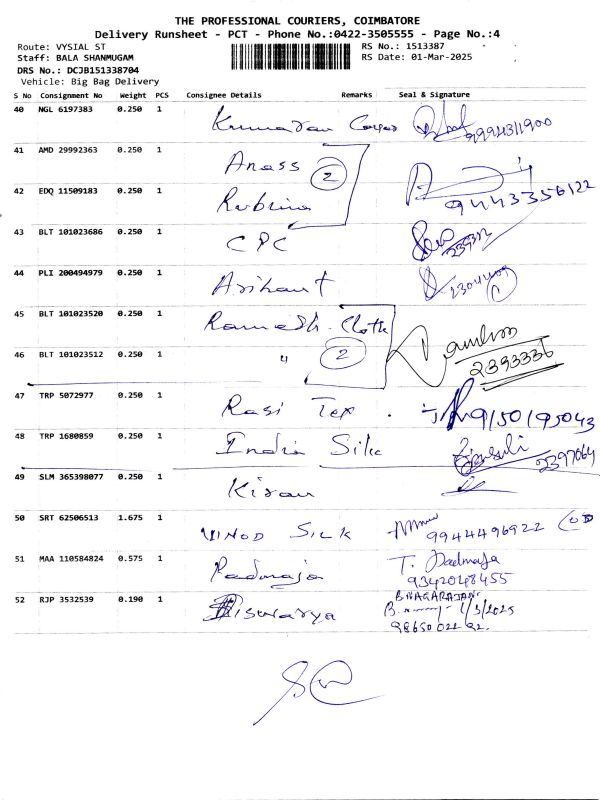 THE PROFESSIONAL COURIERS, COIMBATORE
Delivery Runsheet - PCT - Phone No.:0422-3505555 - Page No.:4
Route: VYSIAL ST RS No.: 1513387
Staff: BALA SHANMUGAM RS Date: 01-Mar-2025
DRS No.: DCJB151338704
Vehicle: Big Bag Delivery
S No Consignment No Weight PCS Consignee Details Remarks Seal & Signature
40 NGL 6197383 0.250 1 Kumaran 9994311900
41 AMD 29992363 0.250 1 Anass 2
42 EDQ 11509183 0.250 1 Rubina 9443356122
43 BLT 101023686 0.250 1 CPC
44 PLI 200494979 0.250 1 Arihant 2304409
45 BLT 101023520 0.250 1 Ramesh Cloth
46 BLT 101023512 0.250 1 " 2 2393336
47 TRP 5072977 0.250 1 Rasi Tex. 9150195043
48 TRP 1680859 0.250 1 India Silk 2397064
49 SLM 365398077 0.250 1 Kiran
50 SRT 62506513 1.675 1 VINOD SILK 9944496922
51 MAA 110584824 0.575 1 Padmaja T. Padmaja
9342048455
52 RJP 3532539 0.190 1 Aiswarya B.NAGARAJAN
1/3/2025